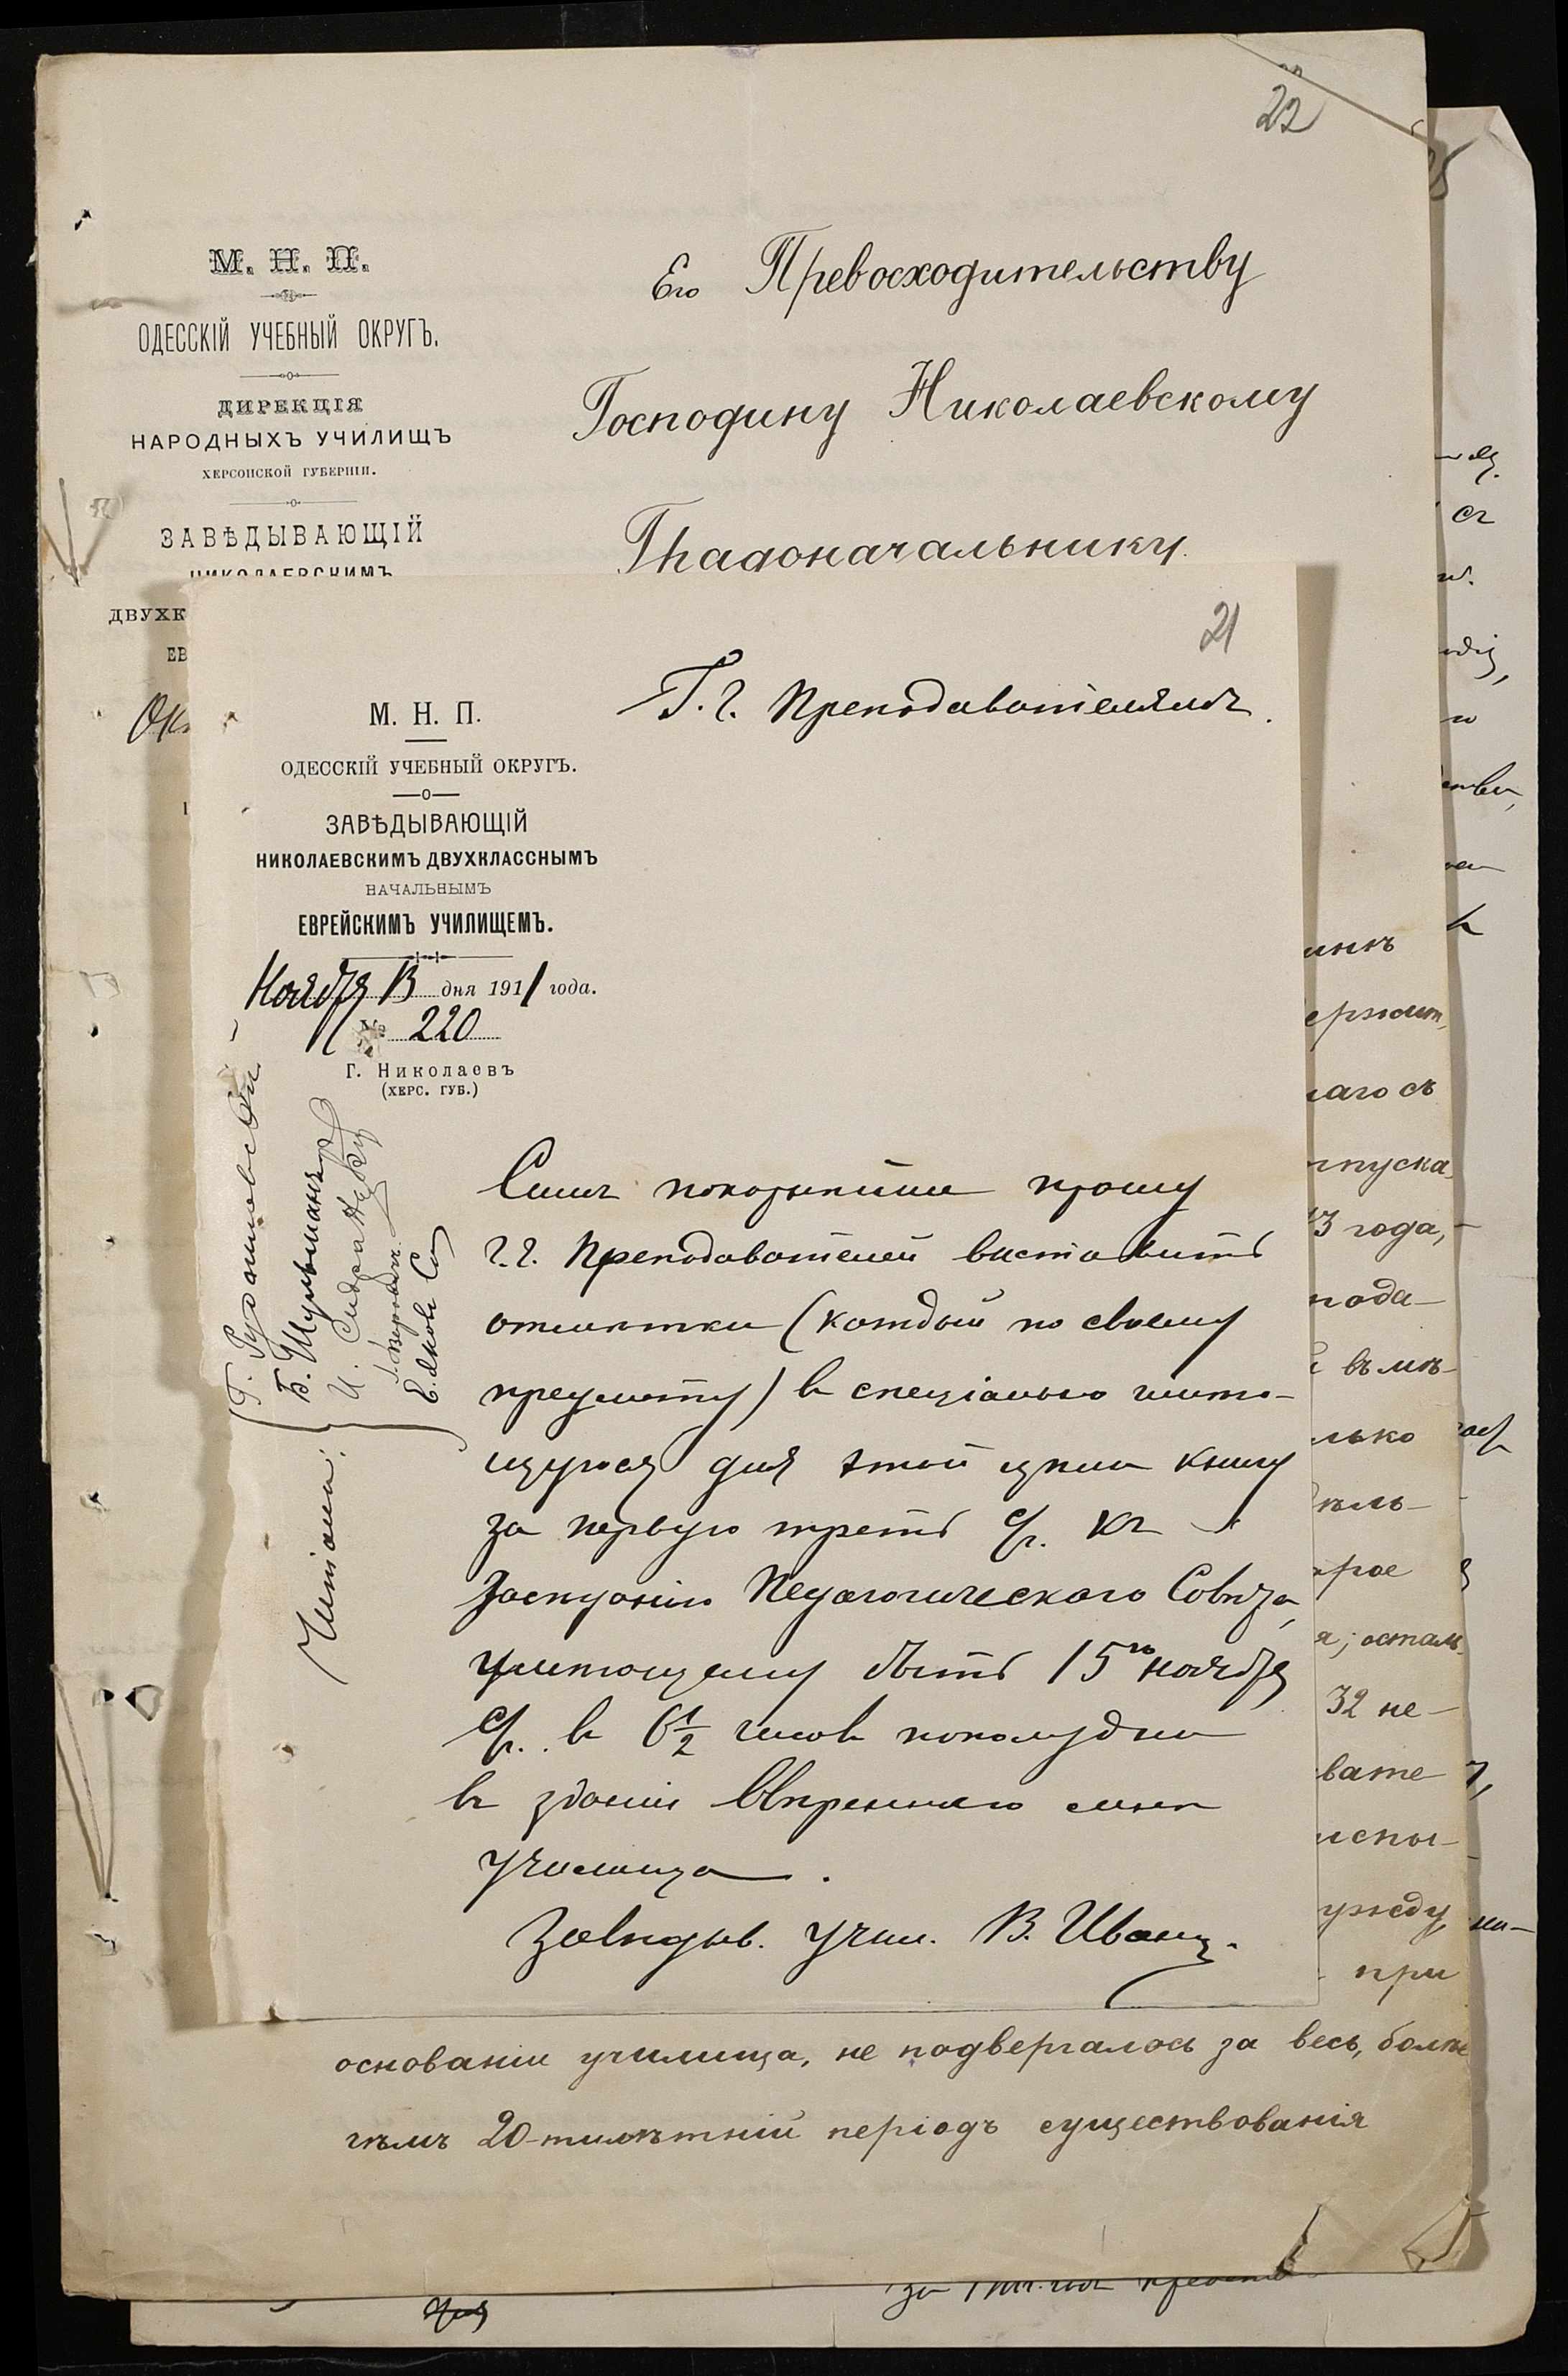 22
М. Н. П.
ОДЕССКІЙ УЧЕБНЫЙ ОКРУГЪ.
ДИРЕКЦІЯ
НАРОДНЫХЪ УЧИЛИЩЪ
ХЕРСОНСКОЙ ГУБЕРНІИ.
ЗАВѢДЫВАЮЩІЙ
НИКОЛАЕВСКИМЪ
ДВУХК
ЕВ
Ок
Его Превосходительству
Господину Николаевскому
Градоначальнику.
21
М. Н. П.
ОДЕССКІЙ УЧЕБНЫЙ ОКРУГЪ.
ЗАВѢДЫВАЮЩІЙ
НИКОЛАЕВСКИМЪ ДВУХКЛАССНЫМЪ
НАЧАЛЬНЫМЪ
ЕВРЕЙСКИМЪ УЧИЛИЩЕМЪ.
Ноября 13 дня 1911 года.
№ 220
Г. Николаевъ
(ХЕРС. ГУБ.)
Г.г. Преподавателямъ.
Симъ покорнѣйше прошу
г.г. Преподавателей выставить
отмѣтки (каждый по своему
предмету) въ спеціально имѣю-
щуюся для этой цѣли книгу
за первую треть с/г. къ
засѣданію Педагогическаго Совѣта,
имѣющему быть 15го ноября
с/г. въ 6 1/2 часовъ пополудни
въ зданіи ввѣреннаго мнѣ
училища.
Завѣдыв. учил. В. Иванц.
Читали:
Б. Шульманъ
инъ
ержит
лаго съ
тпуска
13 года,
пода-
въ мѣ-
лько
ѣль-
орое
я; осталь
32 не-
вате
испы-
ужду
при
основаніи училища, не подвергалось за весь, болѣе
чѣмъ 20-тилѣтній періодъ существованія